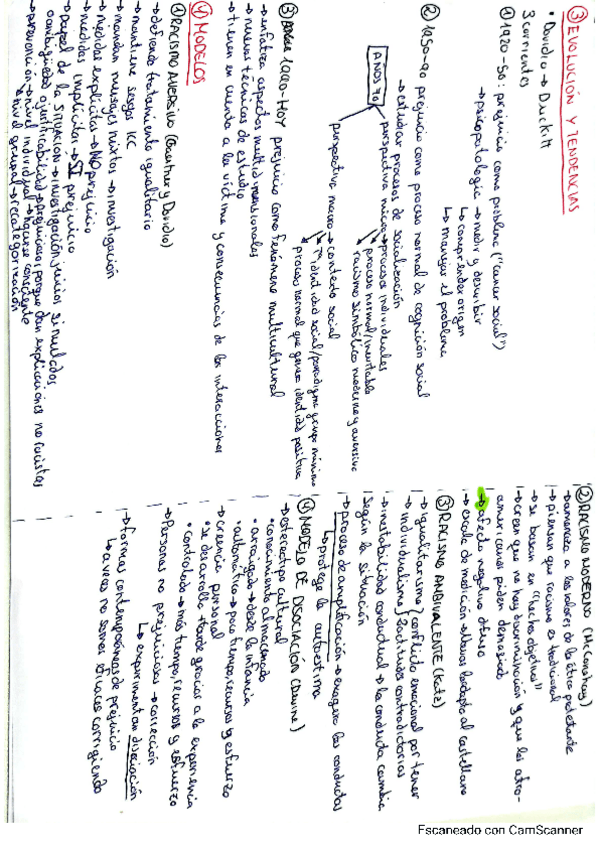 ③ EVOLUCIÓN Y TENDENCIAS
• Dovidio → Duckitt
3 corrientes
① 1920-50: prejuicio como problema ("cáncer social")
→ psicopatología → medir y describir
↳ comprender origen
↳ manejar el problema
② 1950-90 prejuicio como proceso normal de cognición social
→ estudiar procesos de socialización
AÑOS 70
perspectiva micro → procesos individuales
proceso normal/inevitable
racismo simbólico moderno y aversivo
perspectiva macro → contexto social
identidad social/paradigma grupo mínimo
proceso normal que genera identidad positiva
③ 1990-HOY prejuicio como fenómeno multicultural
→ enfatiza aspectos multidimensionales
→ nuevas técnicas de estudio
→ tienen en cuenta a la víctima y consecuencias de las interacciones
④ MODELOS
① RACISMO AVERSIVO (Gaertner y Dovidio)
→ defiende tratamiento igualitario
→ mantiene sesgos ICC
→ mandan mensajes mixtos → investigación
→ medidas explícitas → NO prejuicio
→ medidas implícitas → SÍ prejuicio
→ papel de la situación → investigación juicios simulados
ambigüedad o justificabilidad → prejuicios porque dan explicaciones no racistas
→ prevención → nivel individual → hacerse consciente
nivel grupal → recategorización
② RACISMO MODERNO (McConahay)
→ amenaza a los valores de la ética protestante
→ piensan que racismo es tradicional
→ se basan en "hechos objetivos"
→ creen que no hay discriminación y que los afro-
americanos piden demasiado
→ afecto negativo difuso
→ escala de medición adaptada al castellano
③ RACISMO AMBIVALENTE (Katz)
→ igualitarismo } conflicto emocional por tener
→ individualismo } 2 actitudes contradictorias
→ inestabilidad conductual → la conducta cambia
según la situación
→ proceso de amplificación → exagera las conductas
↳ protege la autoestima
④ MODELO DE DISOCIACIÓN (Devine)
→ estereotipo cultural
• conocimiento almacenado
• arraigado → desde la infancia
• automático → poco tiempo, recursos y esfuerzo
→ creencia personal
• se desarrolla tarde gracias a la experiencia
• controlado → más tiempo, recursos y esfuerzo
→ Personas no prejuiciosas → corrección
↳ experimentan disociación
→ formas contemporáneas de prejuicio
↳ a veces no somos eficaces corrigiendo
Escaneado con CamScanner